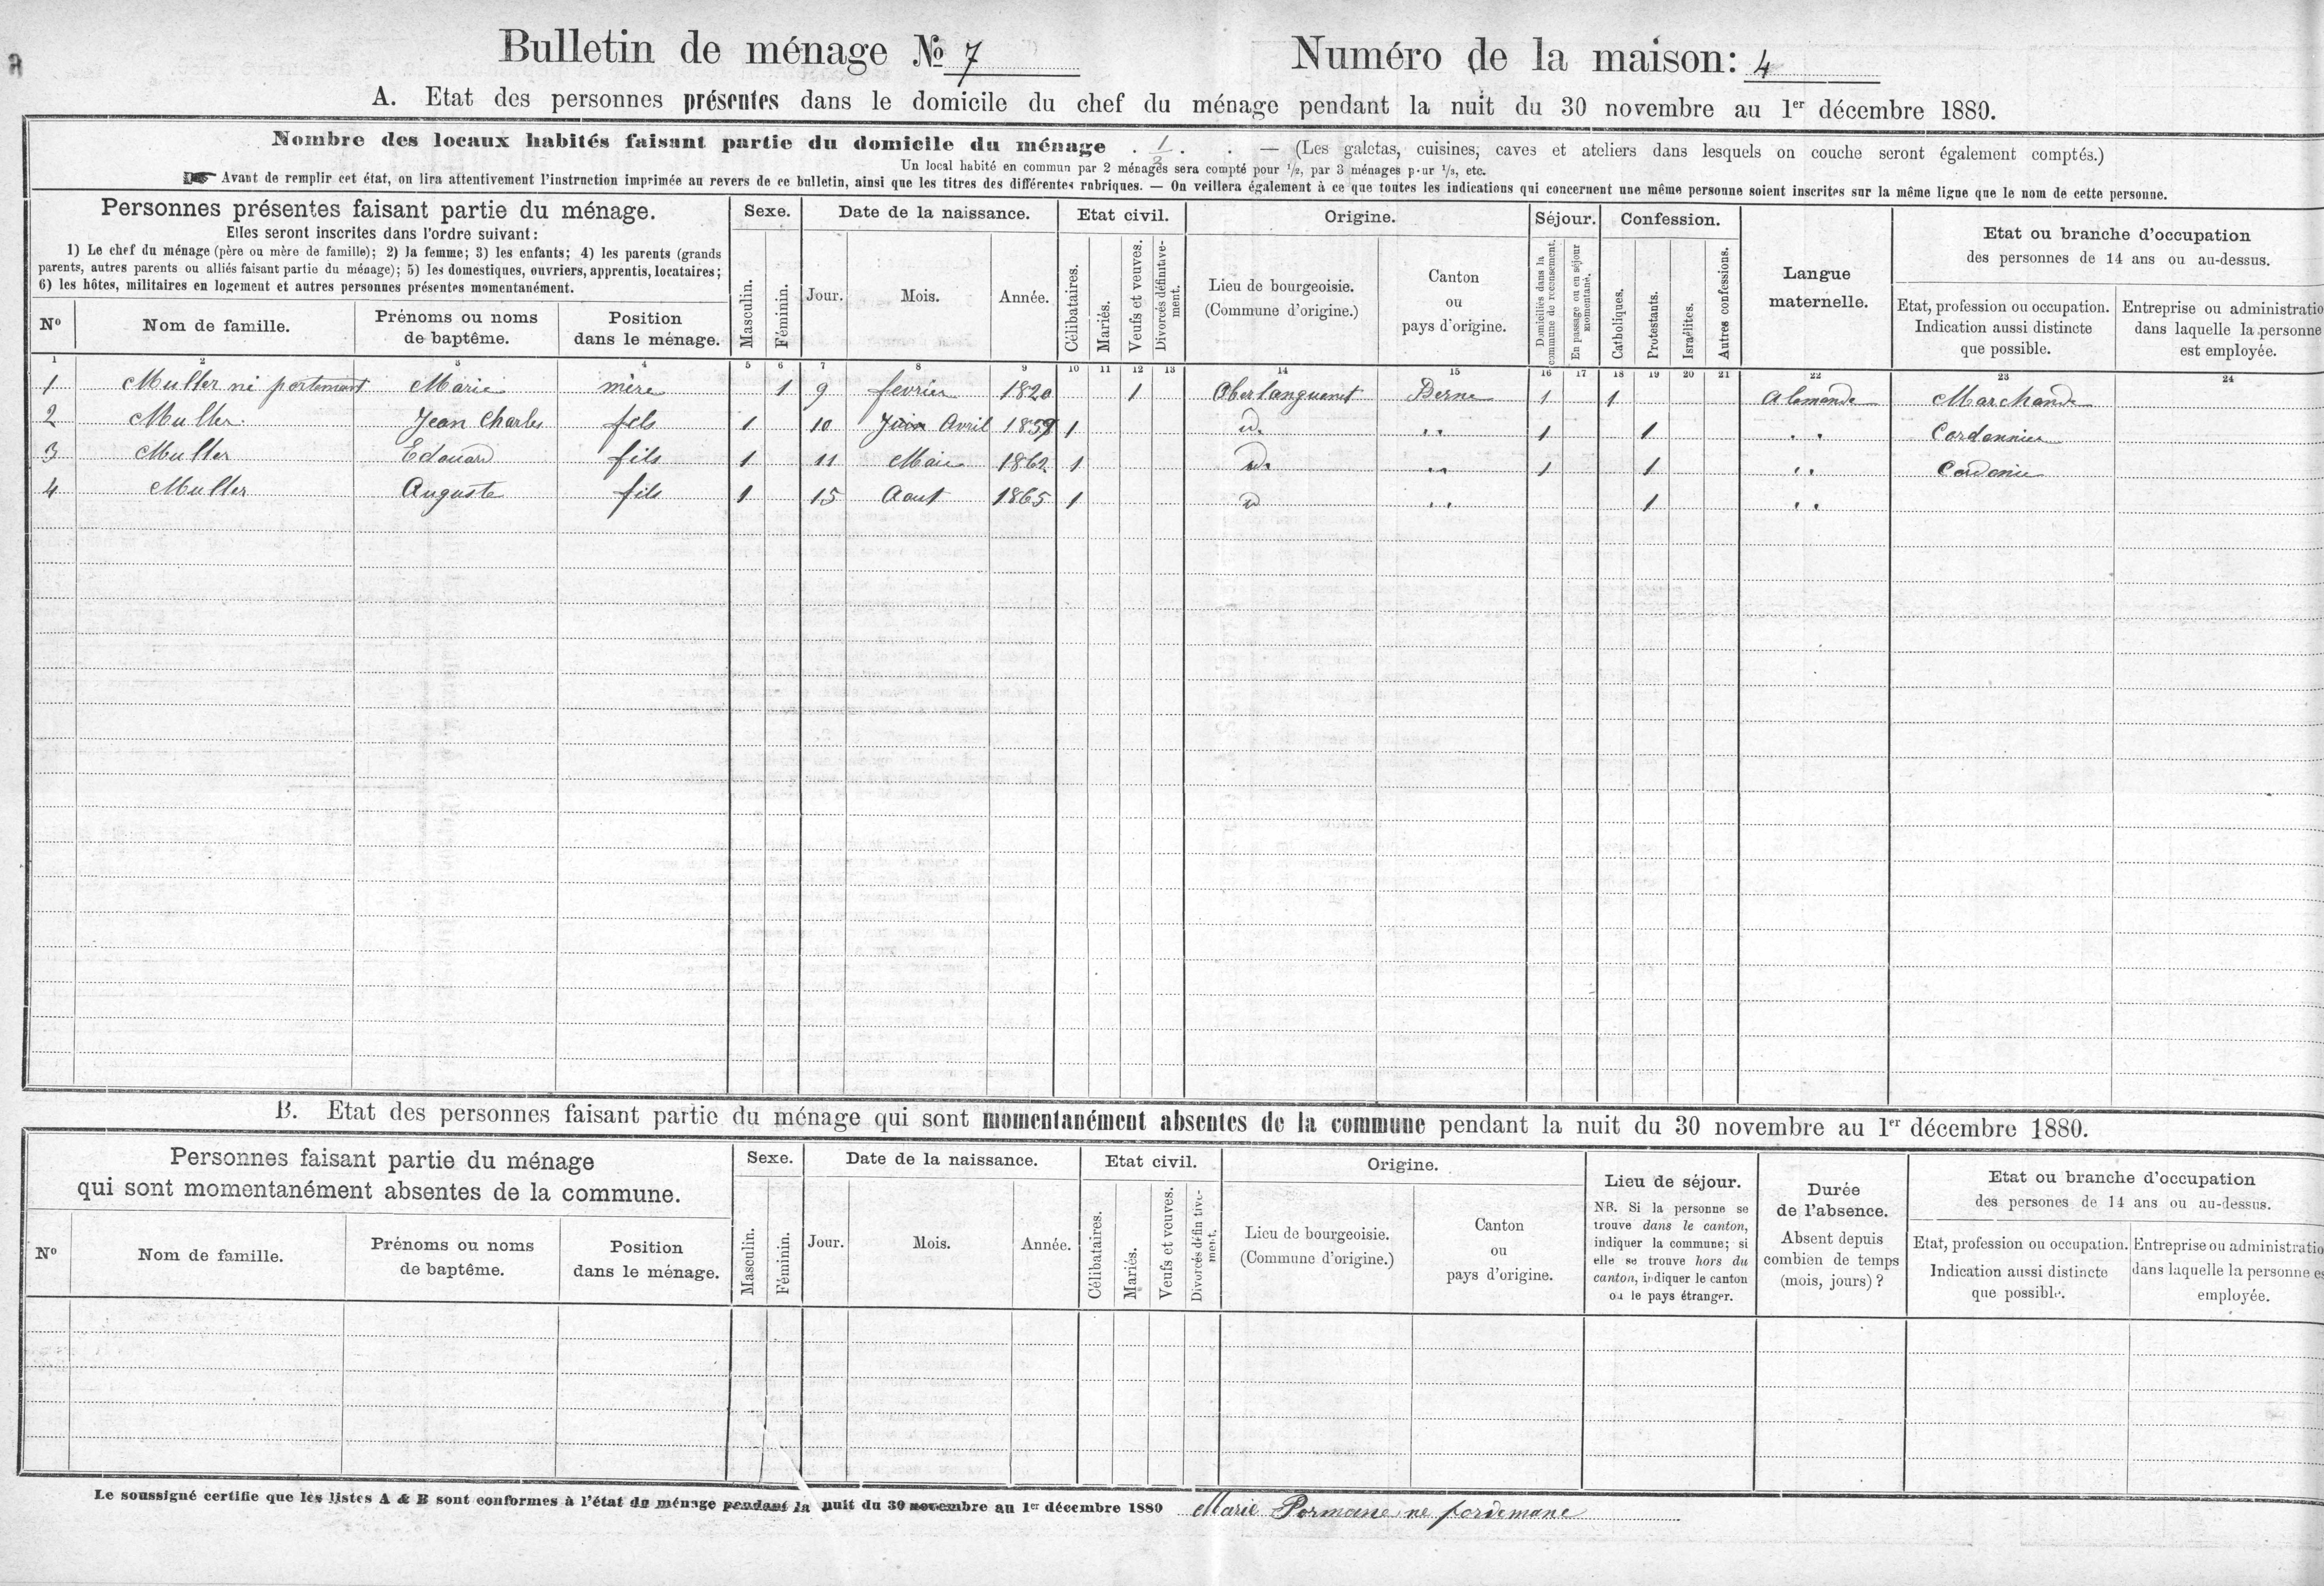 Bulletin de ménage № 7 Numéro de la maison: 4
A. Etat des personnes présentes dans le domicile du chef du ménage pendant la nuit du 30 novembre au 1er décembre 1880.
Nombre des locaux habités faisant partie du domicile du ménage . 1/2 . . — (Les galetas, cuisines, caves et ateliers dans lesquels on couche seront également comptés.)
Un local habité en commun par 2 ménages sera compté pour 1/2, par 3 ménages pour 1/3, etc.
☛ Avant de remplir cet état, on lira attentivement l'instruction imprimée au revers de ce bulletin, ainsi que les titres des différentes rubriques. — On veillera également à ce que toutes les indications qui concernent une même personne soient inscrites sur la même ligne que le nom de cette personne.
Personnes présentes faisant partie du ménage.
Elles seront inscrites dans l'ordre suivant:
1) Le chef du ménage (père ou mère de famille); 2) la femme; 3) les enfants; 4) les parents (grands
parents, autres parents ou alliés faisant partie du ménage); 5) les domestiques, ouvriers, apprentis, locataires;
6) les hôtes, militaires en logement et autres personnes présentes momentanément.
No
Nom de famille.
Prénoms ou noms
de baptême.
Position
dans le ménage.
Sexe.
Masculin.
Féminin.
Date de la naissance.
Jour.
Mois.
Année.
Etat civil.
Célibataires.
Mariés.
Veufs et veuves.
Divorcés définitive-
ment.
Origine.
Lieu de bourgeoisie.
(Commune d'origine.)
Canton
ou
pays d'origine.
Séjour.
Domiciliés dans la
commune de recensement.
En passage ou en séjour
momentané.
Confession.
Catholiques.
Protestants.
Israélites.
Autres confessions.
Langue
maternelle.
Etat ou branche d'occupation
des personnes de 14 ans ou au-dessus.
Etat, profession ou occupation.
Indication aussi distincte
que possible.
Entreprise ou administratio
dans laquelle la personne
est employée.
1 2 3 4 5 6 7 8 9 10 11 12 13 14 15 16 17 18 19 20 21 22 23 24
1 Muller né portemant Marie mère 1 9 fevrier 1820 1 Oberlanguenet Berne 1 1 Alemande Marchande
2 Muller Jean Charles fils 1 10 Juin Avril 1859 1 id. " 1 1 " Cordonnier
3 Muller Edouard fils 1 11 Mai 1862 1 id. " 1 1 " Cordonie
4 Muller Auguste fils 1 15 Aout 1865 1 id " 1 "
B. Etat des personnes faisant partie du ménage qui sont momentanément absentes de la commune pendant la nuit du 30 novembre au 1er décembre 1880.
Personnes faisant partie du ménage
qui sont momentanément absentes de la commune.
No
Nom de famille.
Prénoms ou noms
de baptême.
Position
dans le ménage.
Sexe.
Masculin.
Féminin.
Date de la naissance.
Jour.
Mois.
Année.
Etat civil.
Célibataires.
Mariés.
Veufs et veuves.
Divorcés défin tive-
ment.
Origine.
Lieu de bourgeoisie.
(Commune d'origine.)
Canton
ou
pays d'origine.
Lieu de séjour.
NB. Si la personne se
trouve dans le canton,
indiquer la commune; si
elle se trouve hors du
canton, indiquer le canton
ou le pays étranger.
Durée
de l'absence.
Absent depuis
combien de temps
(mois, jours)?
Etat ou branche d'occupation
des persones de 14 ans ou au-dessus.
Etat, profession ou occupation.
Indication aussi distincte
que possible.
Entreprise ou administratio
dans laquelle la personne es
employée.
Le soussigné certifie que les listes A & B sont conformes à l'état du ménage pendant la nuit du 30 novembre au 1er décembre 1880 Marie Pormane ne pordemane